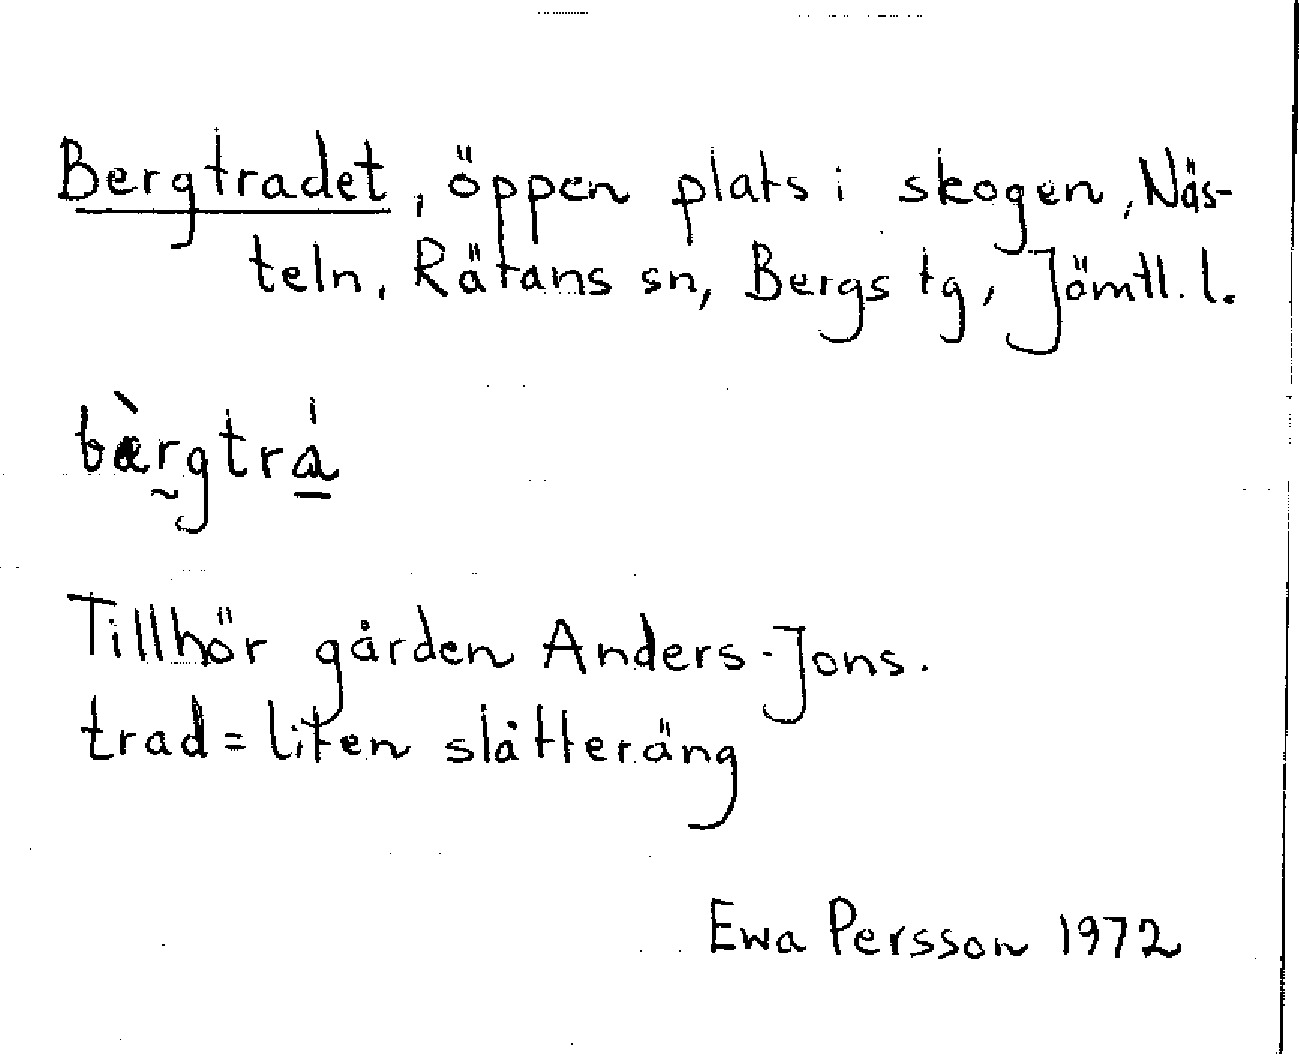 Bergtradet, öppen plats i skogen, Näs-
teln, Rätans sn, Bergs tg, Jämtl. l.
bàrgtrá
Tillhör gården Anders-Jons.
trad = liten slåtteräng
Ewa Persson 1972